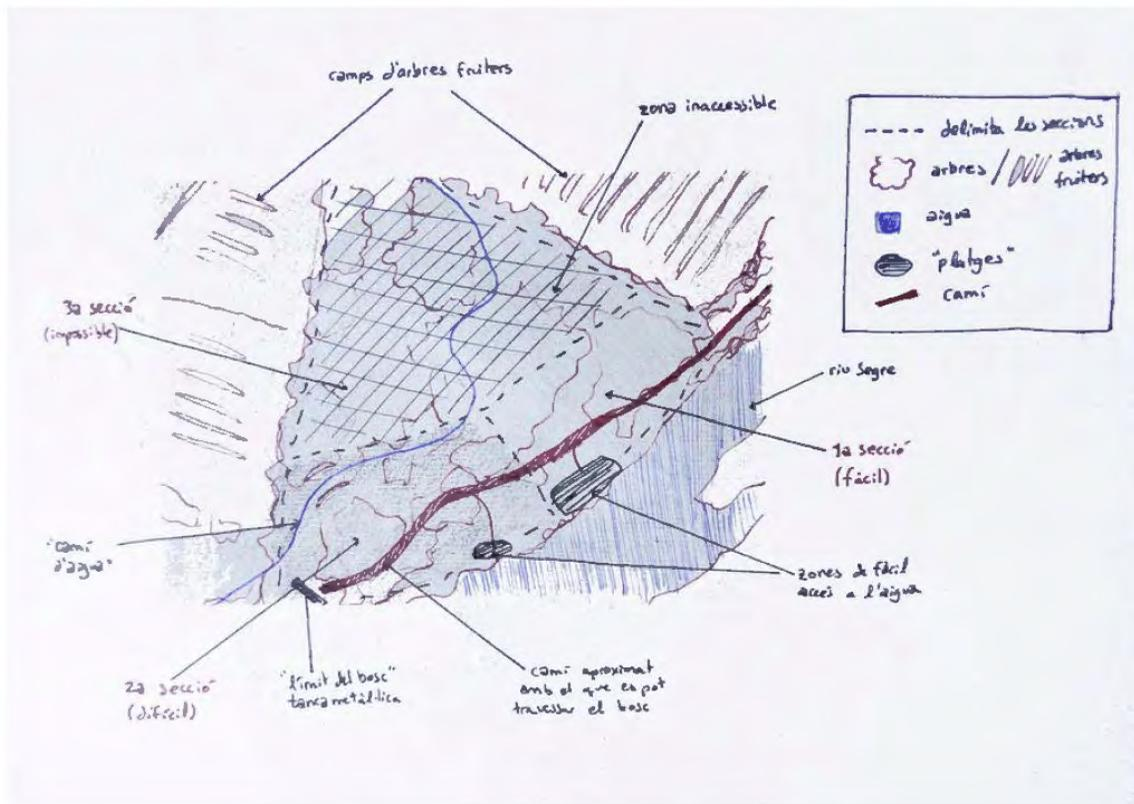 camps d'arbres fruiters
zona inaccessible
delimita les seccions
arbres / arbres
fruiters
aigua
"platges"
camí
3a secció
(impossible)
riu Segre
1a secció
(fàcil)
"camí
d'aigua"
zones de fàcil
accés a l'aigua
2a secció
(difícil)
"límit del bosc"
tanca metàl·lica
camí aproximat
amb el que es pot
travessar el bosc